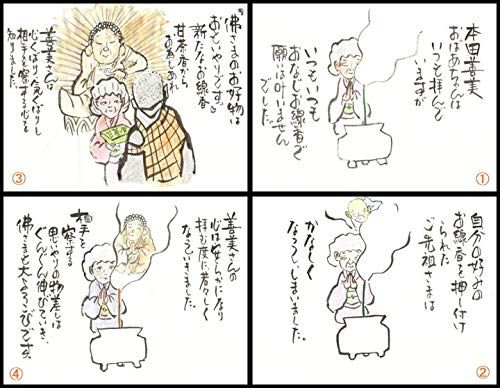 本田善美
おばあちゃんは
いつも拝んで
いますが
いつもいつも
おなじお線香で
願は叶いません
でした。
①
自分の好みの
お線香を押し付け
られた
ご先祖さまは
かなしく
なってしまいました。
②
『佛さまのお好物は
おもいやりです。』
新たなお線香
甘茶香から
善美さんは
心くばり気くばりし
相手を察する心を
知りました。
③
善美さんの
心は安らかになり
拝む度に若々しく
なっていきました。
相手を
察する
思いやりの物差しは
ぐんぐん伸びていき、
佛さまも大よろこびです。
④